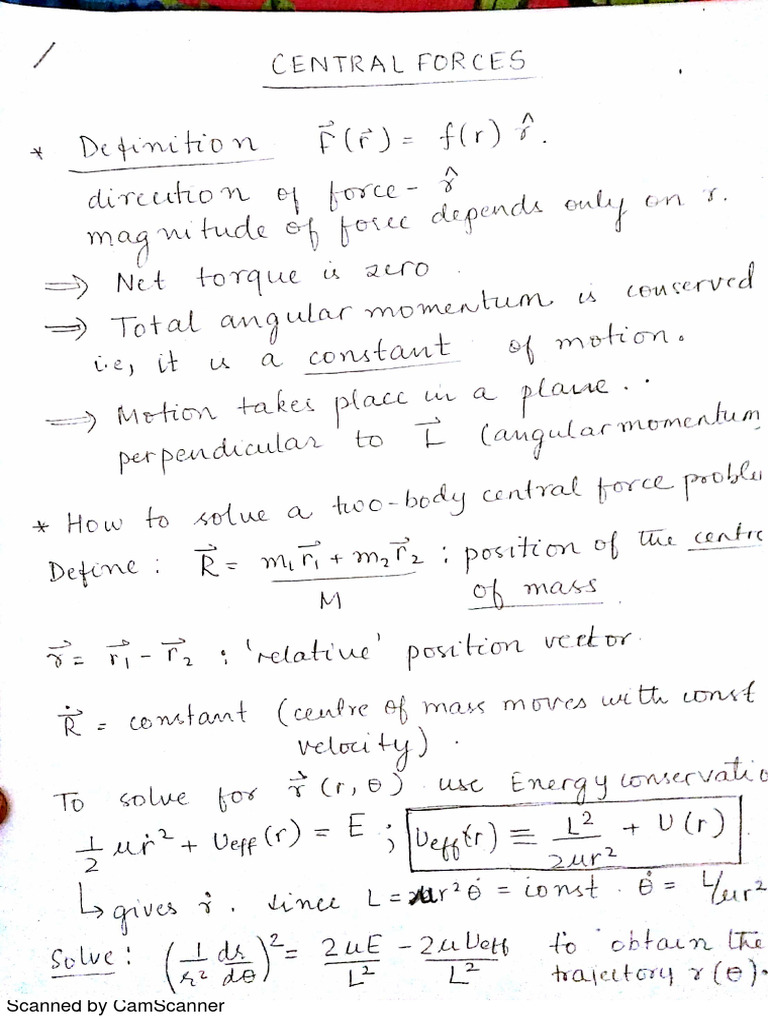 CENTRAL FORCES
* Definition F⃗(r⃗) = f(r) r̂.
direction of force - r̂
magnitude of force depends only on r.
⟹ Net torque is zero.
⟹ Total angular momentum is conserved
i.e, it is a constant of motion.
⟹ Motion takes place in a plane.
perpendicular to L⃗ (angular momentum
* How to solve a two-body central force proble
Define : R⃗ = (m₁r⃗₁ + m₂r⃗₂)/M : position of the centre
of mass.
r⃗ = r⃗₁ - r⃗₂ : 'relative' position vector.
Ṙ⃗ = constant (centre of mass moves with const
velocity).
To solve for r⃗ (r, θ) use Energy conservatio
1/2 μṙ² + Ueff (r) = E ; Ueff(r) ≡ L²/2μr² + U(r)
↳ gives ṙ. since L = μr²θ̇ = const. θ̇ = L/μr²
Solve : (1/r² dr/dθ)² = 2μE/L² - 2μUeff/L² to obtain the
trajectory r(θ).
Scanned by CamScanner